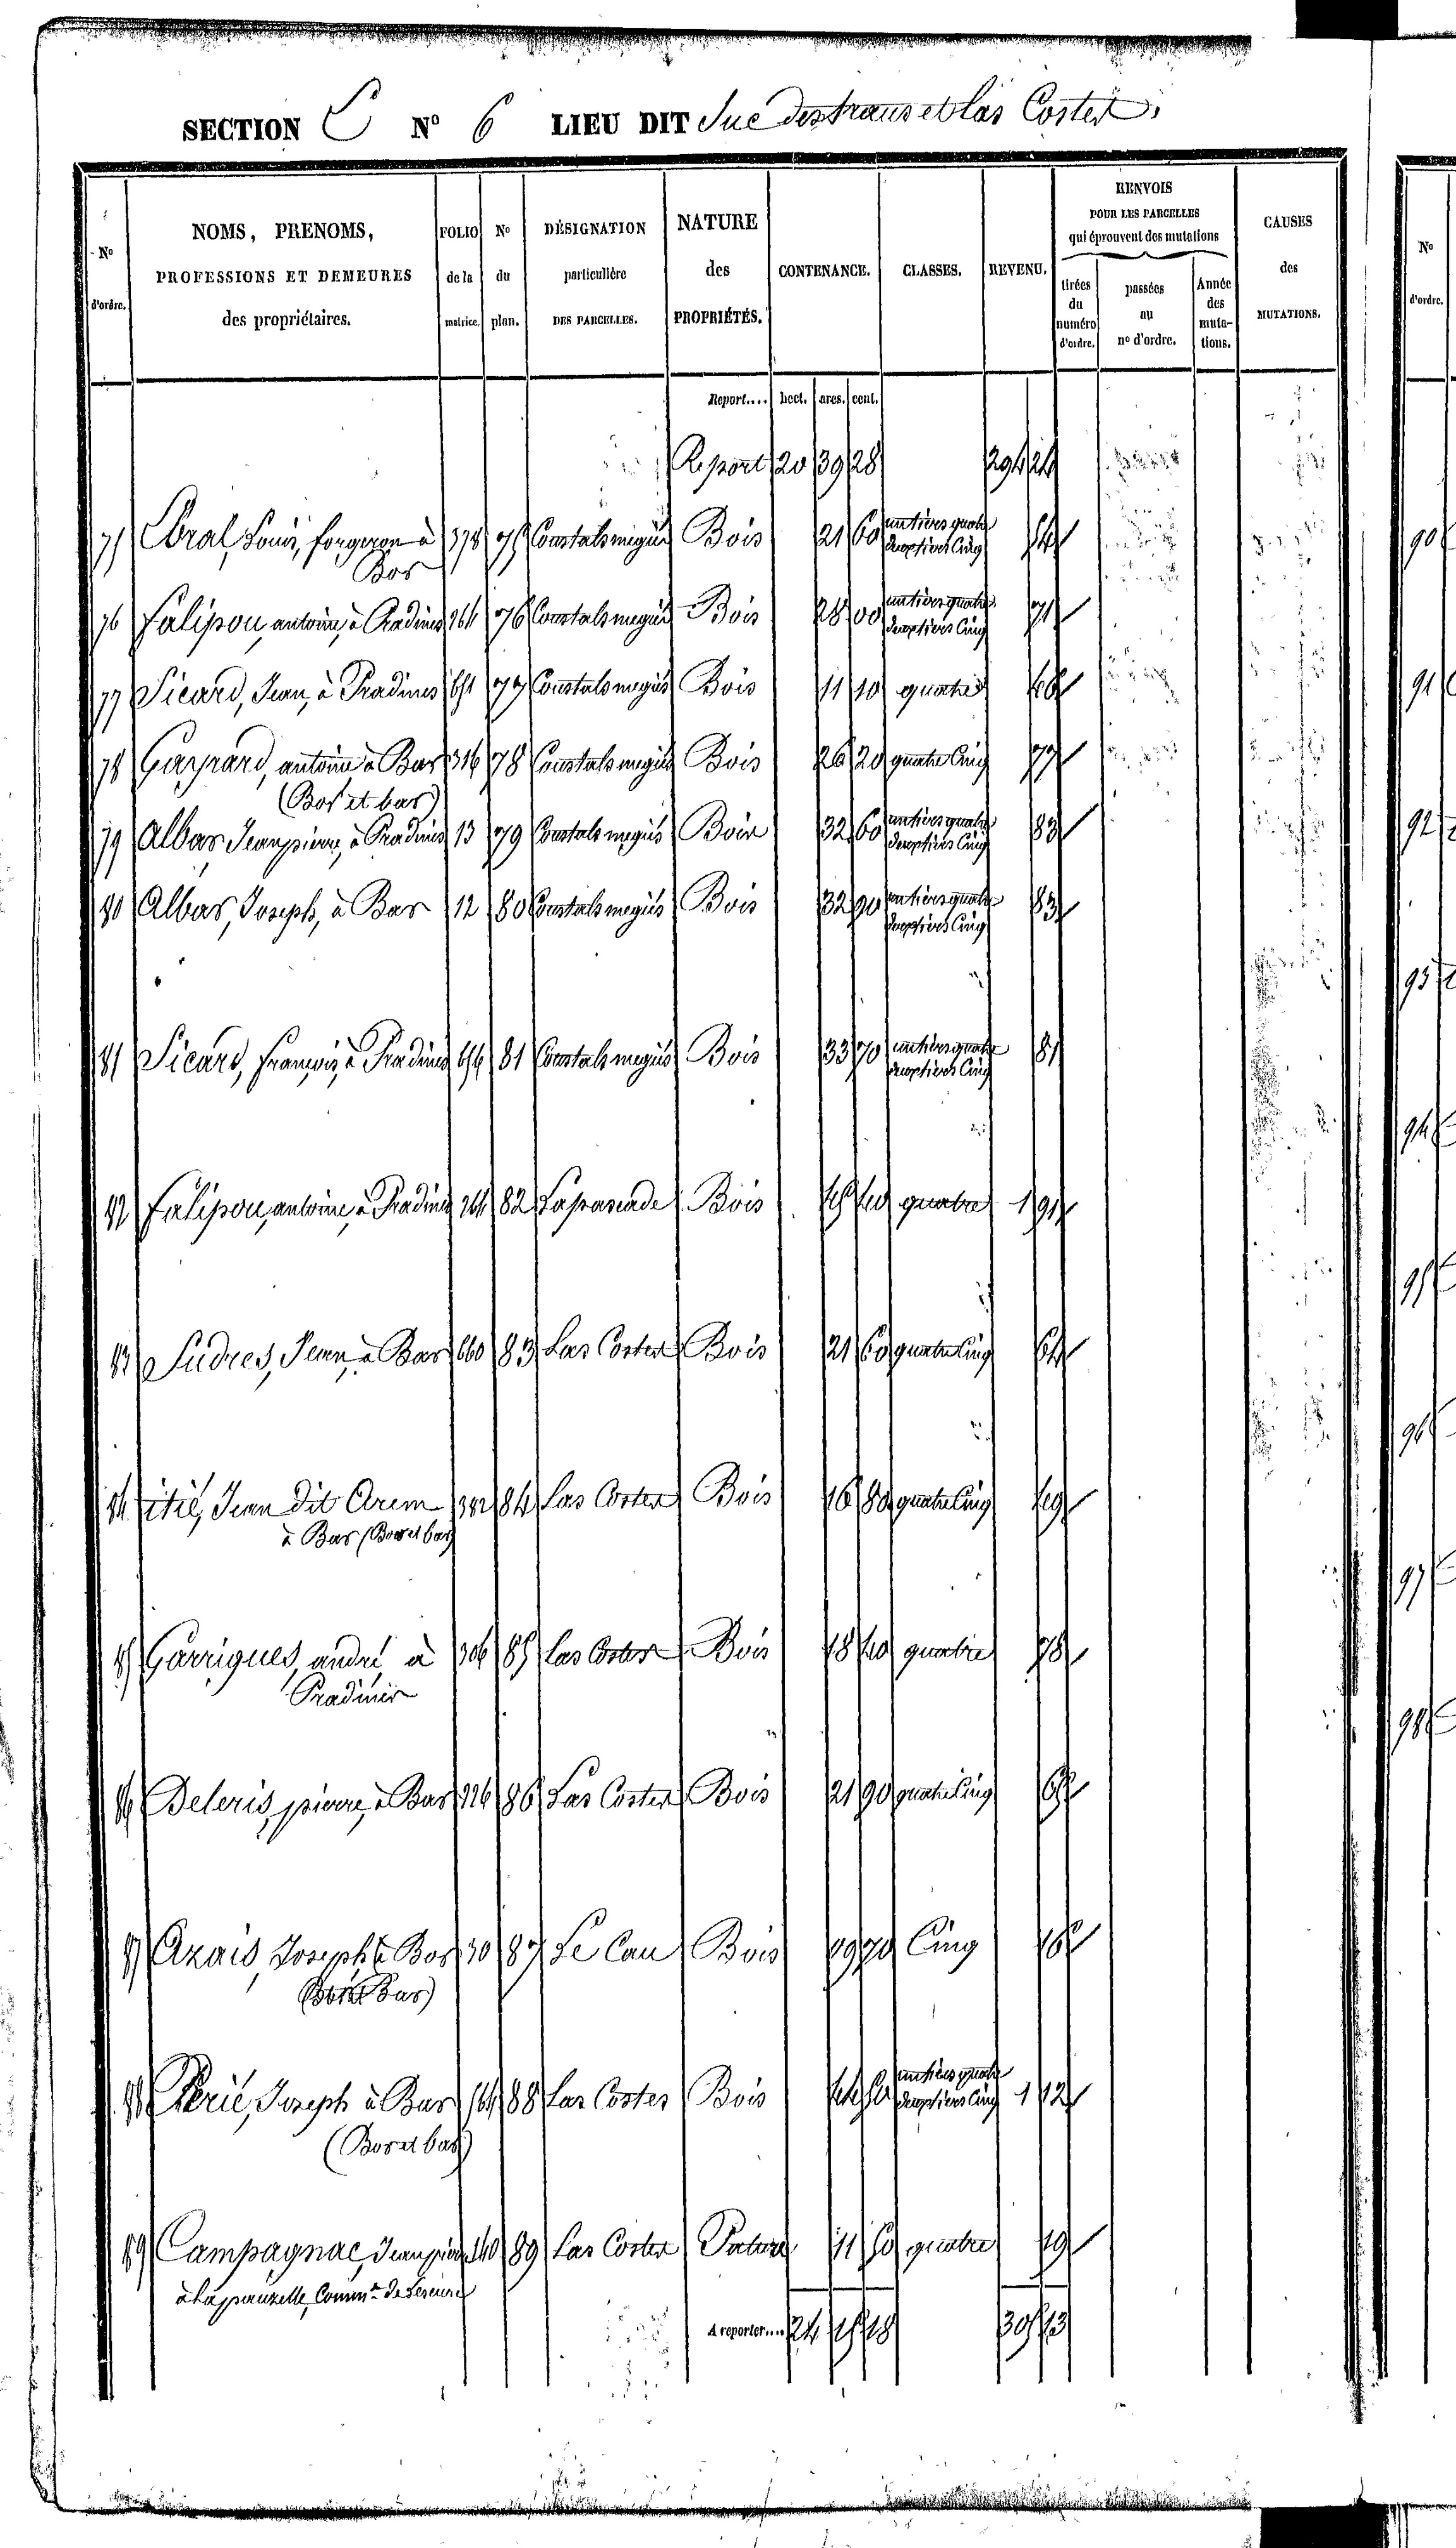 SECTION C N° 6 LIEU DIT Suc Destraus et las Costes
N° d'ordre.
NOMS, PRENOMS, PROFESSIONS ET DEMEURES des propriétaires.
FOLIO de la matrice.
N° du plan.
DÉSIGNATION particulière DES PARCELLES.
NATURE des PROPRIÉTÉS.
CONTENANCE.
CLASSES.
REVENU.
RENVOIS POUR LES PARCELLES qui éprouvent des mutations
tirées du numéro d'ordre.
passées au n° d'ordre.
Année des muta-tions.
CAUSES des MUTATIONS.
N° d'ordre.
Report.... hect. ares. cent.
Report 20 39 28 294 24
75 Louis, forgeron à 378 75 Bois 21 60 un tiers quatre
deux tiers Cinq
Bos
76 Falipou, antoine, à Pradines 264 76 Bois 28 00 un tiers quatre 71
deux tiers Cinq
77 Sicard, Jean, à Pradines 651 77 Bois 11 10 quatre 46
78 Gayrard, antoine à Bar 316 78 Bois 26 20 quatre Cinq 77
(Bos et bar)
79 Albar, Jean pierre, à Pradines 13 79 Bois 32 60 un tiers quatre 83
deux tiers Cinq
80 Albar, Joseph, à Bar 12 80 Bois 32 90 un tiers quatre 83
deux tiers Cinq
81 Sicard, françois, à Pradines 81 Bois 33 70 un tiers quatre 81
deux tiers Cinq
82 Falipou, antoine, à Pradines 264 82 Lapascade Bois 45 40 quatre 1 91
83 Sudres, Jean, à Bar 660 83 Las Costes Bois 21 60 quatre Cinq 64
84 itié, Jean dit Arem 382 84 Las Costes Bois 16 80 quatre Cinq 49
à Bar (Bos et bar)
85 Garrigues, andré à 306 85 Las Costes Bois 18 40 quatre 78
Pradines
86 Deleris, pierre, à Bar 226 86 Las Costes Bois 21 90 quatre Cinq 65
87 Azais, Joseph à Bos 30 87 Le Cau Bois 19 70 Cinq
(Bos et Bar)
88 Perié, Joseph à Bar 88 Las Costes Bois 44 un tiers quatre 1 12
deux tiers Cinq
(Bos et bar)
89 Campagnac, Jean pierre 140 89 Las Costes Pature 11 quatre 19
à Lapauzelle, Commne de Lescure
A reporter.... 24 15 18 305 73
90
91
92
93
94
95
96
97
98